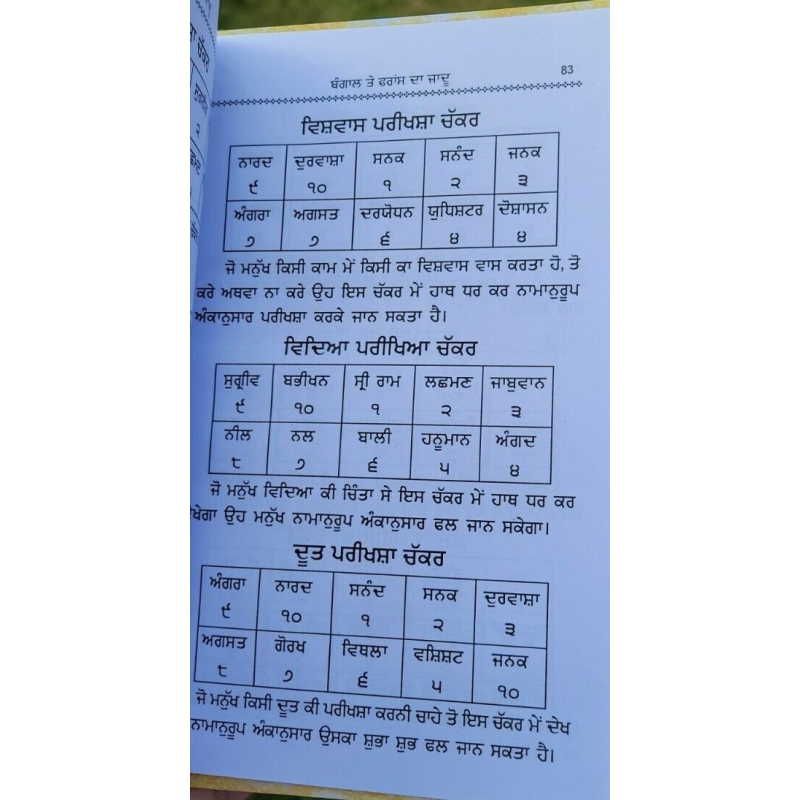 ਬੰਗਾਲ ਤੇ ਫਰਾਂਸ ਦਾ ਜਾਦੂ 83
ਵਿਸ਼ਵਾਸ ਪਰੀਖਸ਼ਾ ਚੱਕਰ
ਨਾਰਦ ਦੁਰਵਾਸ਼ਾ ਸਨਕ ਸਨੰਦ ਜਨਕ
੯ ੧੦ ੧ ੨ ੩
ਅੰਗਰਾ ਅਗਸਤ ਦਰਯੋਧਨ ਯੁਧਿਸ਼ਟਰ ਦੋਸ਼ਾਸਨ
੭ ੭ ੬ ੪ ੪
ਜੋ ਮਨੁੱਖ ਕਿਸੀ ਕਾਮ ਮੇਂ ਕਿਸੀ ਕਾ ਵਿਸ਼ਵਾਸ ਵਾਸ ਕਰਤਾ ਹੋ, ਤੋ
ਕਰੇ ਅਥਵਾ ਨਾ ਕਰੇ ਉਹ ਇਸ ਚੱਕਰ ਮੇਂ ਹਾਥ ਧਰ ਕਰ ਨਾਮਾਨੁਰੂਪ
ਅੰਕਾਨੁਸਾਰ ਪਰੀਖਸ਼ਾ ਕਰਕੇ ਜਾਨ ਸਕਤਾ ਹੈ।
ਵਿਦਿਆ ਪਰੀਖਿਆ ਚੱਕਰ
ਸੁਗ੍ਰੀਵ ਬਭੀਖਨ ਸ੍ਰੀ ਰਾਮ ਲਛਮਣ ਜਾਬੁਵਾਨ
੯ ੧੦ ੧ ੨ ੩
ਨੀਲ ਨਲ ਬਾਲੀ ਹਨੂਮਾਨ ਅੰਗਦ
੮ ੭ ੬ ੫ ੪
ਜੋ ਮਨੁੱਖ ਵਿਦਿਆ ਕੀ ਚਿੰਤਾ ਸੇ ਇਸ ਚੱਕਰ ਮੇਂ ਹਾਥ ਧਰ ਕਰ
ਉਹ ਮਨੁੱਖ ਨਾਮਾਨੁਰੂਪ ਅੰਕਾਨੁਸਾਰ ਫਲ ਜਾਨ ਸਕੇਗਾ।
ਦੂਤ ਪਰੀਖਸ਼ਾ ਚੱਕਰ
ਅੰਗਰਾ ਨਾਰਦ ਸਨੰਦ ਸਨਕ ਦੁਰਵਾਸ਼ਾ
੯ ੧੦ ੧ ੨ ੩
ਅਗਸਤ ਗੋਰਖ ਵਿਥਲਾ ਵਸ਼ਿਸ਼ਟ ਜਨਕ
੮ ੭ ੬ ੫ ੧੦
ਜੋ ਮਨੁੱਖ ਕਿਸੀ ਦੂਤ ਕੀ ਪਰੀਖਸ਼ਾ ਕਰਨੀ ਚਾਹੇ ਤੋ ਇਸ ਚੱਕਰ ਮੇਂ ਦੇਖ
ਨਾਮਾਨੁਰੂਪ ਅੰਕਾਨੁਸਾਰ ਉਸਕਾ ਸ਼ੁਭਾ ਸ਼ੁਭ ਫਲ ਜਾਨ ਸਕਤਾ ਹੈ।